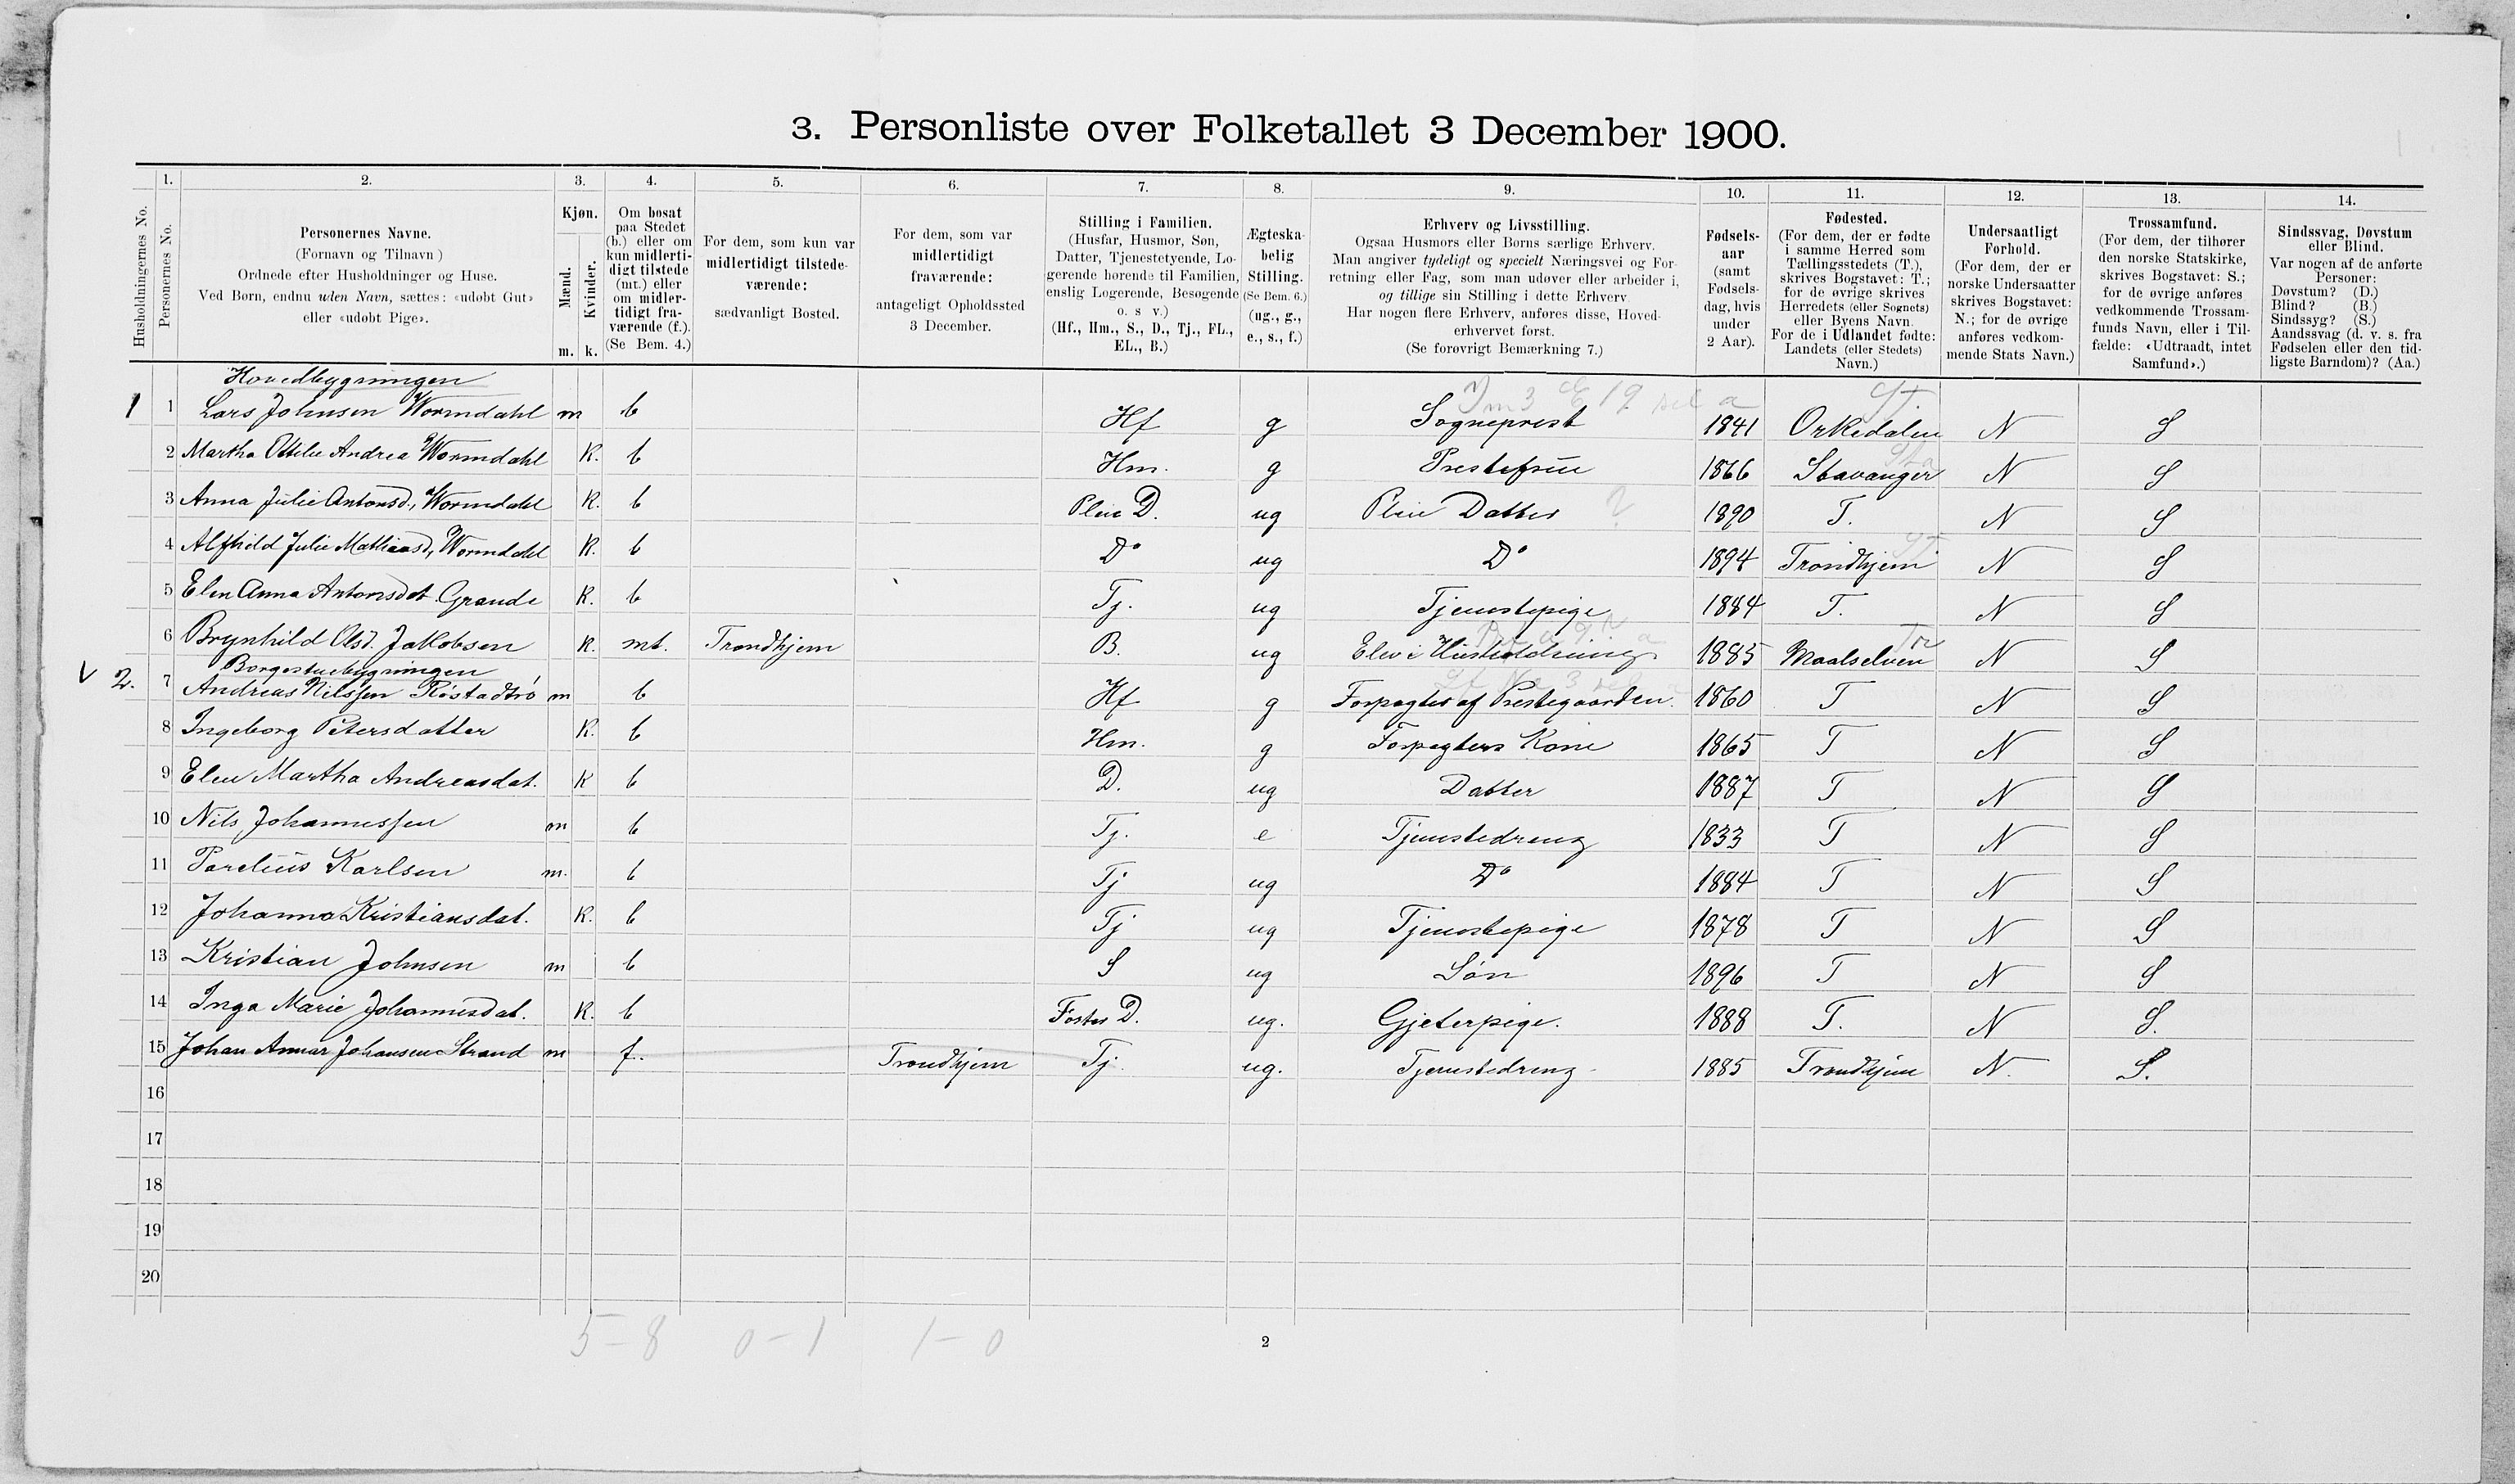 3. Personliste over Folketallet 3 December 1900.
Husholdningernes No.
1.
Personernes No.
2.
Personernes Navne.
(Fornavn og Tilnavn)
Ordnede efter Husholdninger og Huse.
Ved Børn, endnu uden Navn, sættes: «udøbt Gut»
eller «udøbt Pige».
3.
Kjøn.
Mænd.
Kvinder.
m. k.
4.
Om bosat
paa Stedet
(b.) eller om
kun midlerti-
digt tilstede
(mt.) eller
om midler-
tidigt fra-
værende (f.).
(Se Bem. 4.)
5.
For dem, som kun var
midlertidigt tilstede-
værende:
sædvanligt Bosted.
6.
For dem, som var
midlertidigt
fraværende:
antageligt Opholdssted
3 December.
7.
Stilling i Familien.
(Husfar, Husmor, Søn,
Datter, Tjenestetyende, Lo-
gerende hørende til Familien,
enslig Logerende, Besøgende
o. s v.)
(Hf., Hm., S., D., Tj., FL.,
EL., B.)
8.
Ægteska-
belig
Stilling.
(Se Bem. 6.)
(ug., g.,
e., s., f.)
9.
Erhverv og Livsstilling.
Ogsaa Husmors eller Børns særlige Erhverv.
Man angiver tydeligt og specielt Næringsvei og For-
retning eller Fag, som man udøver eller arbeider i,
og tillige sin Stilling i dette Erhverv
Har nogen flere Erhverv, anføres disse, Hoved-
erhvervet først.
(Se forøvrigt Bemærkning 7.)
10.
Fødsels-
aar
(samt
Fødsels-
dag, hvis
under
2 Aar).
11.
Fødested.
(For dem, der er fødte
i samme Herred som
Tællingsstedets (T.),
skrives Bogstavet: T.;
for de øvrige skrives
Herredets (eller Sognets)
eller Byens Navn.
For de i Udlandet fødte:
Landets (eller Stedets)
Navn.)
12.
Undersaatligt
Forhold.
(For dem, der er
norske Undersaatter
skrives Bogstavet:
N.; for de øvrige
anføres vedkom-
mende Stats Navn.)
13.
Trossamfund.
(For dem, der tilhører
den norske Statskirke,
skrives Bogstavet: S.;
for de øvrige anføres
vedkommende Trossam-
funds Navn, eller i Til-
fælde: «Udtraadt, intet
Samfund».)
14.
Sindssvag, Døvstum
eller Blind.
Var nogen af de anførte
Personer:
Døvstum? (D.)
Blind? (B.)
Sindssyg? (S.)
Aandssvag (d. v. s. fra
Fødselen eller den tid-
ligste Barndom)? (Aa.)
Hovedbygningen
1 1 Lars Johnsen Wormdahl m b Hf g Sogneprest 1841 Orkedalen N S
2 Martha Ottilie Andrea Wormdahl K. b Hm. g Prestefrue 1866 Stavanger N S
3 Anna Julie Antonsd., Wormdahl K. b Pleie D. ug Pleie Datter 1890 T. N S
4 Alfhild Julie Mathiasd., Wormdahl K. b Do ug Do 1894 Trondhjem N S
5 Elen Anna Antonsdat Grande K. b Tj. ug Tjenestepige 1884 T. N S
6 Brynhild Olsd. Jakobsen K. mt. Trondhjem B. ug Elev i Husholdning 1885 Maalselven N S
Borgestuebygningen
2. 7 Andreas Nilssen Røstadtrø m b Hf g Forpagter af Prestegaarden. 1860 T N S
8 Ingeborg Petersdatter K. b Hm. g Forpagters Kone 1865 T N S
9 Elen Martha Andreasdat. K b D. ug Datter 1887 T N S
10 Nils Johannessen m b Tj. e Tjenestedreng 1833 T N S
11 Parelius Karlsen m. b Tj ug Do 1884 T N S
12 Johanna Kristiansdat. K. b Tj ug Tjenestepige 1878 T N S
13 Kristian Johnsen m b S ug Søn 1896 T N S
14 Inga Marie Johannesdat. K. b Foster D. ug. Gjeterpige. 1888 T. N S.
15 Johan Annar Johansen Strand m f. Trondhjem Tj. ug. Tjenestedreng 1885 Trondhjem N. S.
16
17
18
19
20
5-8 0-1 1-0
2